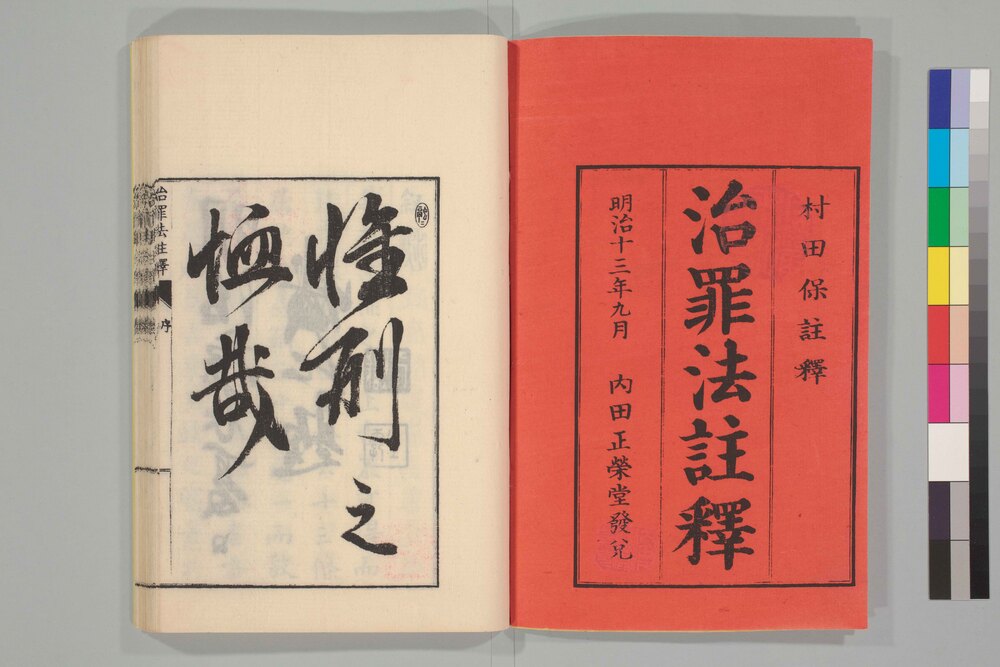 村田保註釋
治罪法註釋
明治十三年九月 内田正榮堂發兌
惟刑之
恤哉
治罪法註釋 序